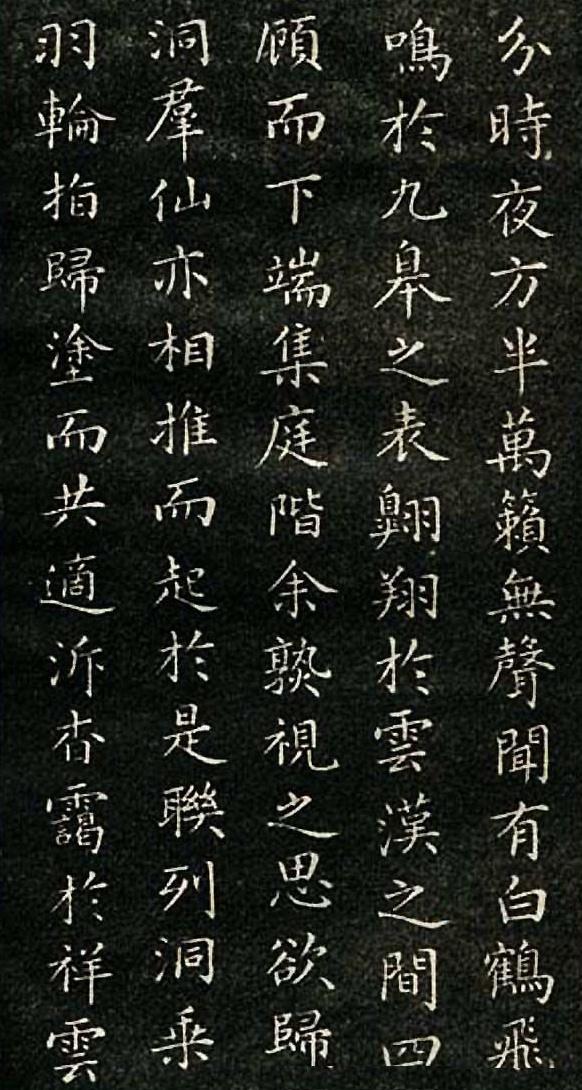 分時夜方半萬籟無聲聞有白鶴飛
鳴於九皋之表翺翔於雲漢之間四
顧而下端集庭階余孰視之思欲歸
洞羣仙亦相推而起於是聯列洞乘
羽輪指歸塗而共適泝杳靄於祥雲